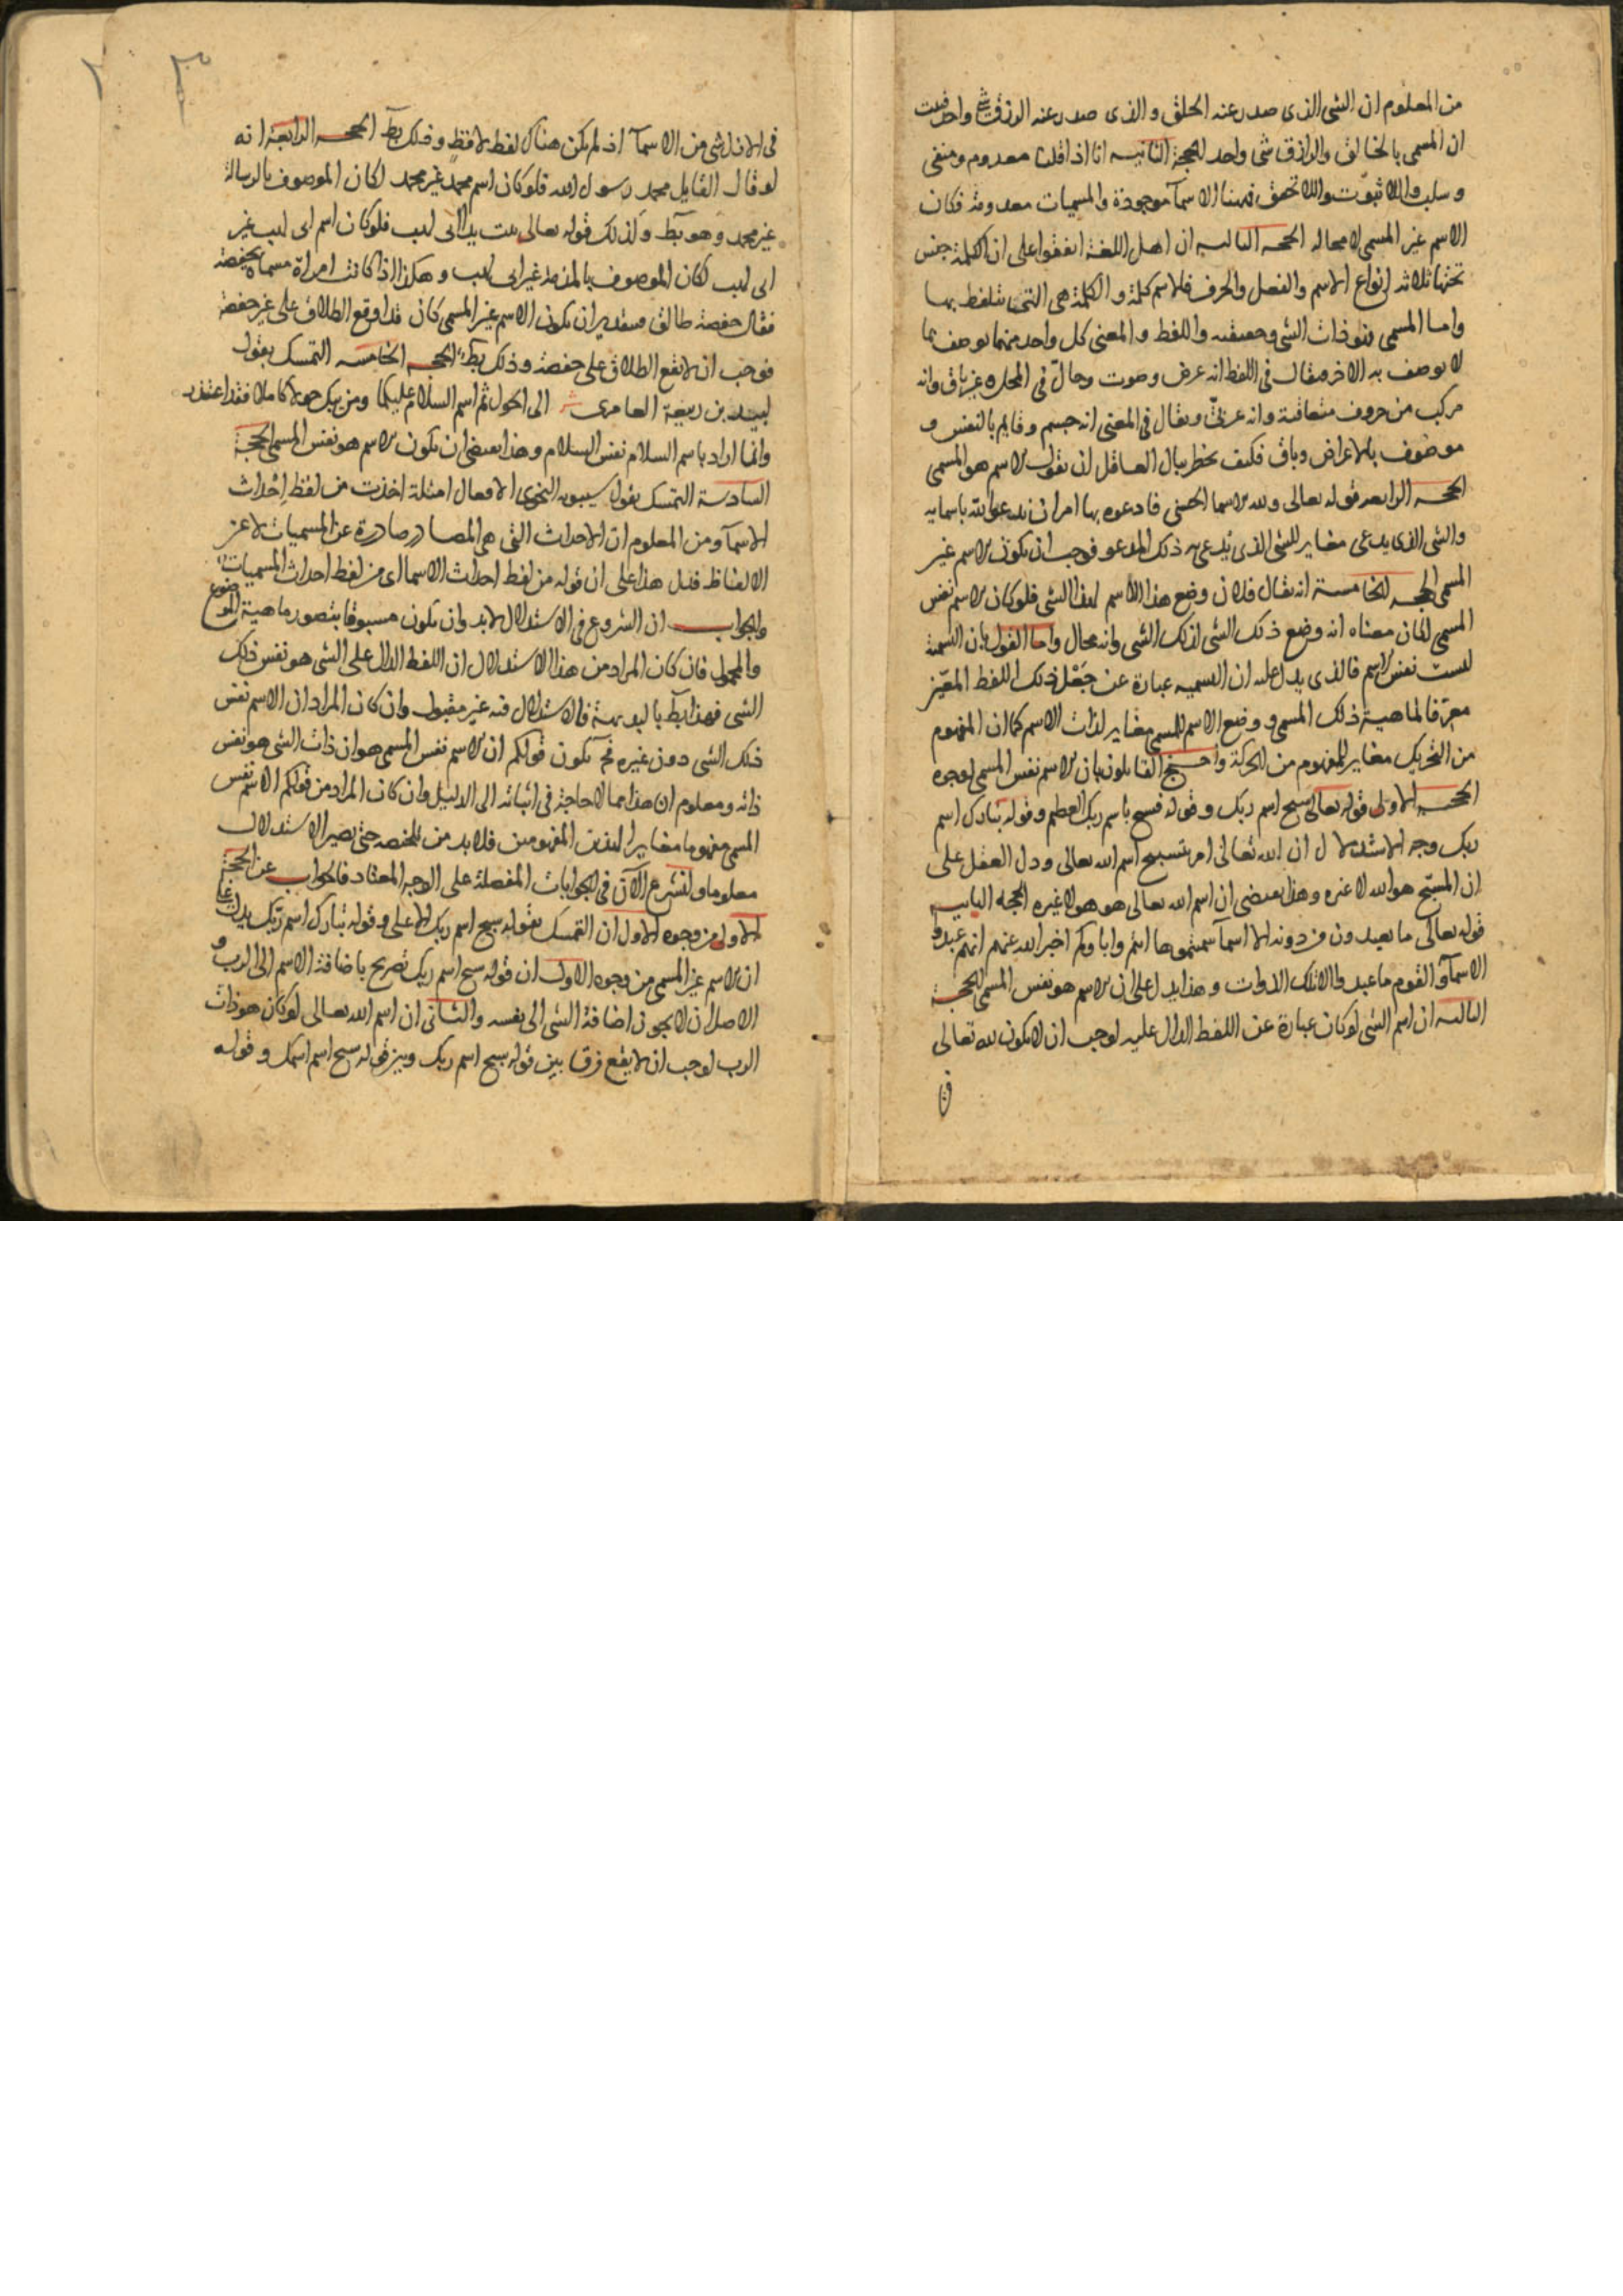 من المعلوم ان الشى الذى صدر عنه الخلق والذى صدر عنه الرزق شى واحد فثبت
ان المسمى بالخالق والرازق شى واحد الحجة الثانيه انا اذا قلنا معدوم ومنفى
وسلب واللاثبوت واللاتحقق فههنا الاسمآ موجودة والمسميات معدومة فكان
الاسم غير المسمى لا محاله الحجه الثالثه ان اهل اللغة اتفقوا على ان الكلمة جنس
تحتها ثلاثة انواع الاسم والفعل والحرف فالاسم كلمة والكلمة هى التى يتلفظ بها
واما المسمى فهو ذات الشى وحقيقته واللفظ والمعنى كل واحد منهما يوصف بما
لا يوصف به الاخر فيقال فى اللفظ انه عرض وصوت وحال فى المحل وغير باق وانه
مركب من حروف متعاقبة وانه عربىّ ويقال فى المعنى انه جسم وقايم بالنفس و
موصوف بالاعراض وباق فكيف يخطر ببال العاقل ان يقول الاسم هو المسمى
الحجه الرابعه قوله تعالى ولله الاسما الحسنى فادعوه بها امر ان ندعوا الله باسمايه
والشى الذى يدعى مغاير للشى الذى يدعى به ذلك المدعو فوجب ان يكون الاسم غير
المسمى الحجه الخامسة انه يقال فلان وضع هذا الاسم لهذا الشى فلو كان الاسم نفس
المسمى لكان معناه انه وضع ذلك الشى لذلك الشى وانه محال واما القول بان التسمية
ليست نفس الاسم فالذى يدل عليه ان التسميه عبارة عن جَعْل ذلك اللفظ المعيّن
معرّفا لماهية ذلك المسمى ووضع الاسم للمسمى مغاير لذات الاسم كما ان المفهوم
من التحريك مغاير للمفهوم من الحركة واحتج القايلون بان الاسم نفس المسمى بوجوه
الحجه الاولى قوله تعالى سبح اسم ربك وقوله فسبح باسم ربك العظيم وقوله تبارك اسم
ربك وجه الاستدلال ان الله تعالى امر بتسبيح اسم الله تعالى ودل العقل على
ان المسبّح هو الله لا غيره وهذا يقتضى ان اسم الله تعالى هو هو لا غيره الحجه الثانيه
قوله تعالى ما تعبدون من دونه الا اسمآ سميتموها انتم واباوكم اخبر الله عنهم انهم عبدوا
الاسمآ والقوم ما عبدوا الا تلك الذوات وهذا يدل على ان الاسم هو نفس المسمى الحجة
الثالثه ان اسم الشى لو كان عبارة عن اللفظ الدال عليه لوجب ان لا يكون لله تعالى
فى الازل شى من الاسمآ اذ لم يكن هناك لفظ ولا لافظ وذلك بط الحجه الرابعة انه
لو قال القايل محمد رسول الله فلو كان اسم محمد غير محمد لكان الموصوف بالرسالة
غير محمد وهو بط وكذلك قوله تعالى تبت يدا ابى لهب فلو كان اسم ابى لهب غير
ابى لهب لكان الموصوف بالمذمة غير ابى لهب وهكذا اذا كانت امراة مسماة بحفصة
فقال حفصة طالق فبتقدير ان يكون الاسم غير المسمى كان قد اوقع الطلاق على غير حفصة
فوجب ان لا يقع الطلاق على حفصة وذلك بط الحجه الخامسه التمسك بقول
لبيد بن ربيعة العامرى الى الحول ثم اسم السلام عليكما ومن يبك حولا كاملا فقد اعتذر
وانما اراد باسم السلام نفس السلام وهذا يقتضى ان يكون الاسم هو نفس المسمى الحجة
السادسة التمسك بقول سيبويه النحوى الافعال امثلة اخذت من لفظ احداث
الاسمآ ومن المعلوم ان الاحداث التى هى المصادر صادرة عن المسميات لا عن
الالفاظ فدل هذا على ان قوله من لفظ احداث الاسما اى من لفظ احداث المسميات
والجواب ان الشروع فى الاستدلال لابد وان يكون مسبوقا بتصور ماهية الموضوع
والمحمول فان كان المراد من هذا الاستدلال ان اللفظ الدال على الشى هو نفس ذلك
الشى فهذا بط بالبديهة فالاستدلال فيه غير مقبول وان كان المراد ان الاسم نفس
ذلك الشى دون غيره فح يكون قولكم ان الاسم نفس المسمى هو ان ذات الشى هو نفس
ذاته ومعلوم ان هذا مما لا حاجة فى اثباته الى الدليل وان كان المراد من قولكم الاسم نفس
المسمى مفهوما مغايرا لهذين المفهومين فلا بد من تلخيصه حتى يصير الاستدلال
معلوما ولنشرع الآن فى الجوابات المفصلة على الوجه المعتاد فالجواب عن الحجة
الاولى من وجوه الاول ان التمسك بقوله سبح اسم ربك الاعلى وقوله تبارك اسم ربك يدل على
ان الاسم غير المسمى من وجوه الاول ان قوله سبح اسم ربك تصريح باضافة الاسم الى الرب و
الاصل ان لا يجوز اضافة الشى الى نفسه والثانى ان اسم الله تعالى لو كان هو ذات
الرب لوجب ان لا يقع فرق بين قوله سبح اسم ربك وبين قوله سبح اسم اسمك وقوله